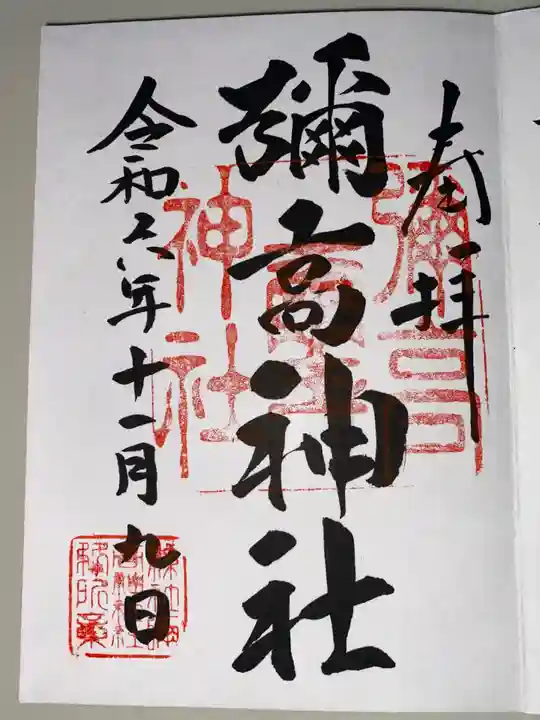 奉拝
彌高神社
令和六年十一月九日